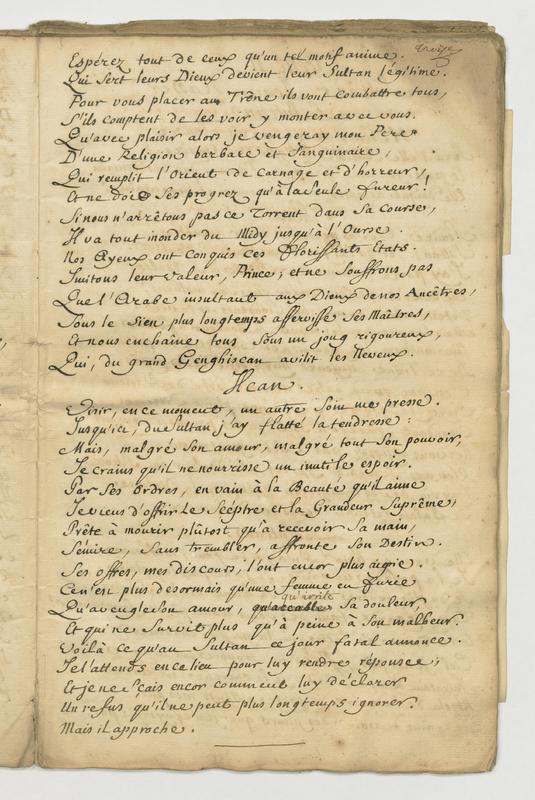 treize
Espérez tout de ceux qu'un tel motif anime.
Qui sert leurs Dieux devient leur Sultan légitime.
Pour vous placer au Trône ils vont combattre tous,
S'ils comptent de les voir y monter avec vous.
Qu'avec plaisir alors je vengeray mon Pere
D'une Religion barbare et Sanguinaire,
Qui remplit l'Orient de Carnage et d'horreur,
Et ne doit Ses progrez qu'à la Seule fureur!
Si nous n'arrêtons pas ce Torrent dans Sa Course,
Il va tout inonder du Midy jusqu'à l'Ourse.
Nos Ayeux ont Conquis ces florissants Etats.
Imitons leur Valeur, Prince; et ne Souffrons pas
Que l'Arabe insultant aux Dieux de nos Ancêtres,
Sous le Sien plus longtemps asservisse Ses Maîtres,
Et nous enchaîne tous Sous un joug rigoureux,
Qui, du grand Genghiscan avilit les Neveux.
Hcan.
Visir, en ce moment, un autre Soin me presse.
Jusqu'ici, du Sultan j'ay flatté la tendresse:
Mais, malgré Son amour, malgré tout Son pouvoir,
Je crains qu'il ne nourrisse un inutile espoir.
Par Ses Ordres, en vain à la Beauté qu'il aime
Je viens d'offrir Le Scéptre et la Grandeur Suprême;
Prête à mourir plûtost qu'à recevoir Sa main,
Sémire, Sans trembler, affronte Son Destin.
Ses offres, mes discours, l'ont encor plus aigrie.
Ce n'est plus desormais qu'une femme en furie
qu'irrite
Qu'aveugle Son amour, qu'accable Sa douleur,
Et qui ne Survit plus qu'à peine à Son malheur.
Voilà ce qu'au Sultan ce jour fatal annonce.
Je l'attends en ce lieu pour luy rendre réponsee;
Et je ne Sçais encor comment luy déclarer
Un refus qu'il ne peut plus longtemps ignorer.
Mais il approche.